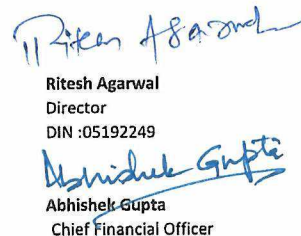 Ritesh Agarwal
Ritesh Agarwal
Director
DIN :05192249
Abhishek Gupta
Abhishek Gupta
Chief Financial Officer